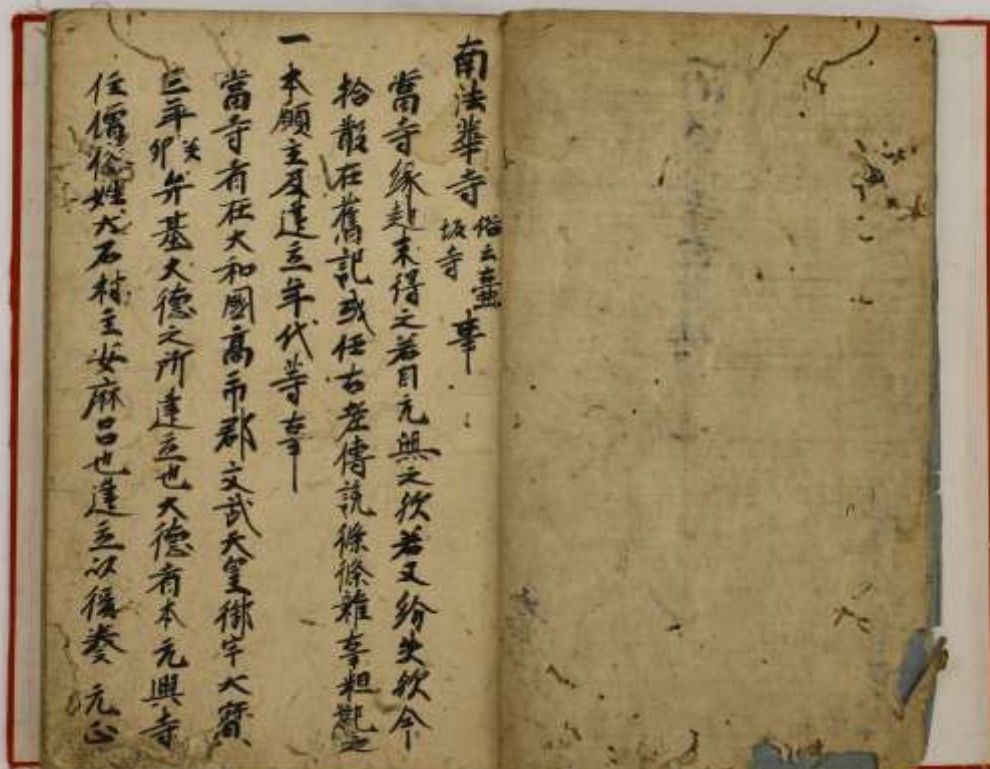 南法華寺 俗云壺坂寺 事
當寺縁起未得之若自元無之欤若又紛失欤今
拾散在舊記或任古老傳説條條雜事粗記之
一本願主及建立年代等事
當寺者在大和國高市郡文武天皇御宇大寳
三年癸卯弁基大德之所建立也大德者本元興寺
住僧俗姓大石村主安麻呂也建立以後奏 元正